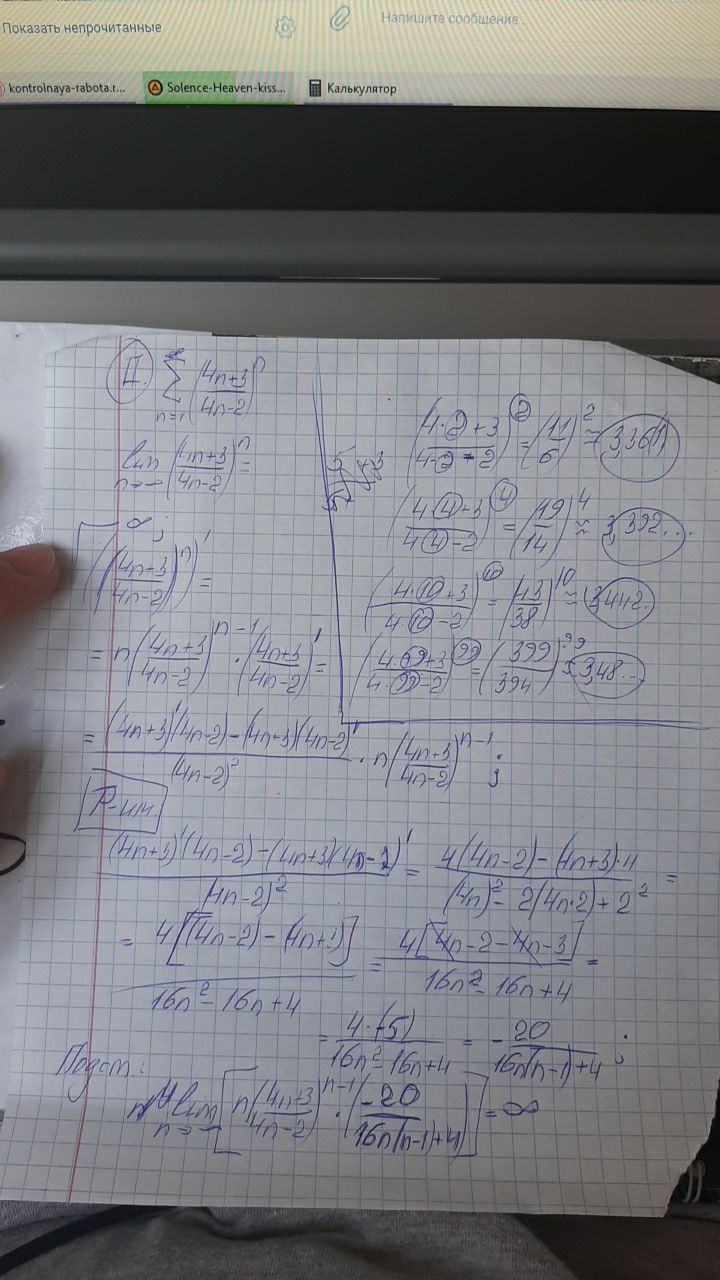 Показать непрочитанные
Напишите сообщение...
kontrolnaya-rabota.r...
Solence-Heaven-kiss...
Калькулятор
II. ∑ n=1 ∞ ((4n+3)/(4n-2))^n
lim n→∞ ((4n+3)/(4n-2))^n =
∞;
(((4n+3)/(4n-2))^n)' =
= n((4n+3)/(4n-2))^(n-1) · ((4n+3)/(4n-2))' =
= ((4n+3)'(4n-2) - (4n+3)(4n-2)')/(4n-2)² · n((4n+3)/(4n-2))^(n-1);
((4·2+3)/(4·2-2))^2 = (11/6)^2 ≈ 3,361
((4·4+3)/(4·4-2))^4 = (19/14)^4 ≈ 3,392...
((4·10+3)/(4·10-2))^10 = (43/38)^10 ≈ 3,442.
((4·99+3)/(4·99-2))^99 = (399/394)^99 ≈ 348...
Р-им.
((4n+3)'(4n-2) - (4n+3)(4n-2)')/(4n-2)² = (4(4n-2) - (4n+3)·4)/((4n)² - 2(4n·2) + 2²) =
= 4[(4n-2) - (4n+3)]/(16n² - 16n + 4) = 4[4n-2-4n-3]/(16n² - 16n + 4) =
= 4·(-5)/(16n² - 16n + 4) = -20/(16n(n-1)+4);
Подст.:
lim n→∞ [n((4n+3)/(4n-2))^(n-1) · (-20/(16n(n-1)+4))] = ∞